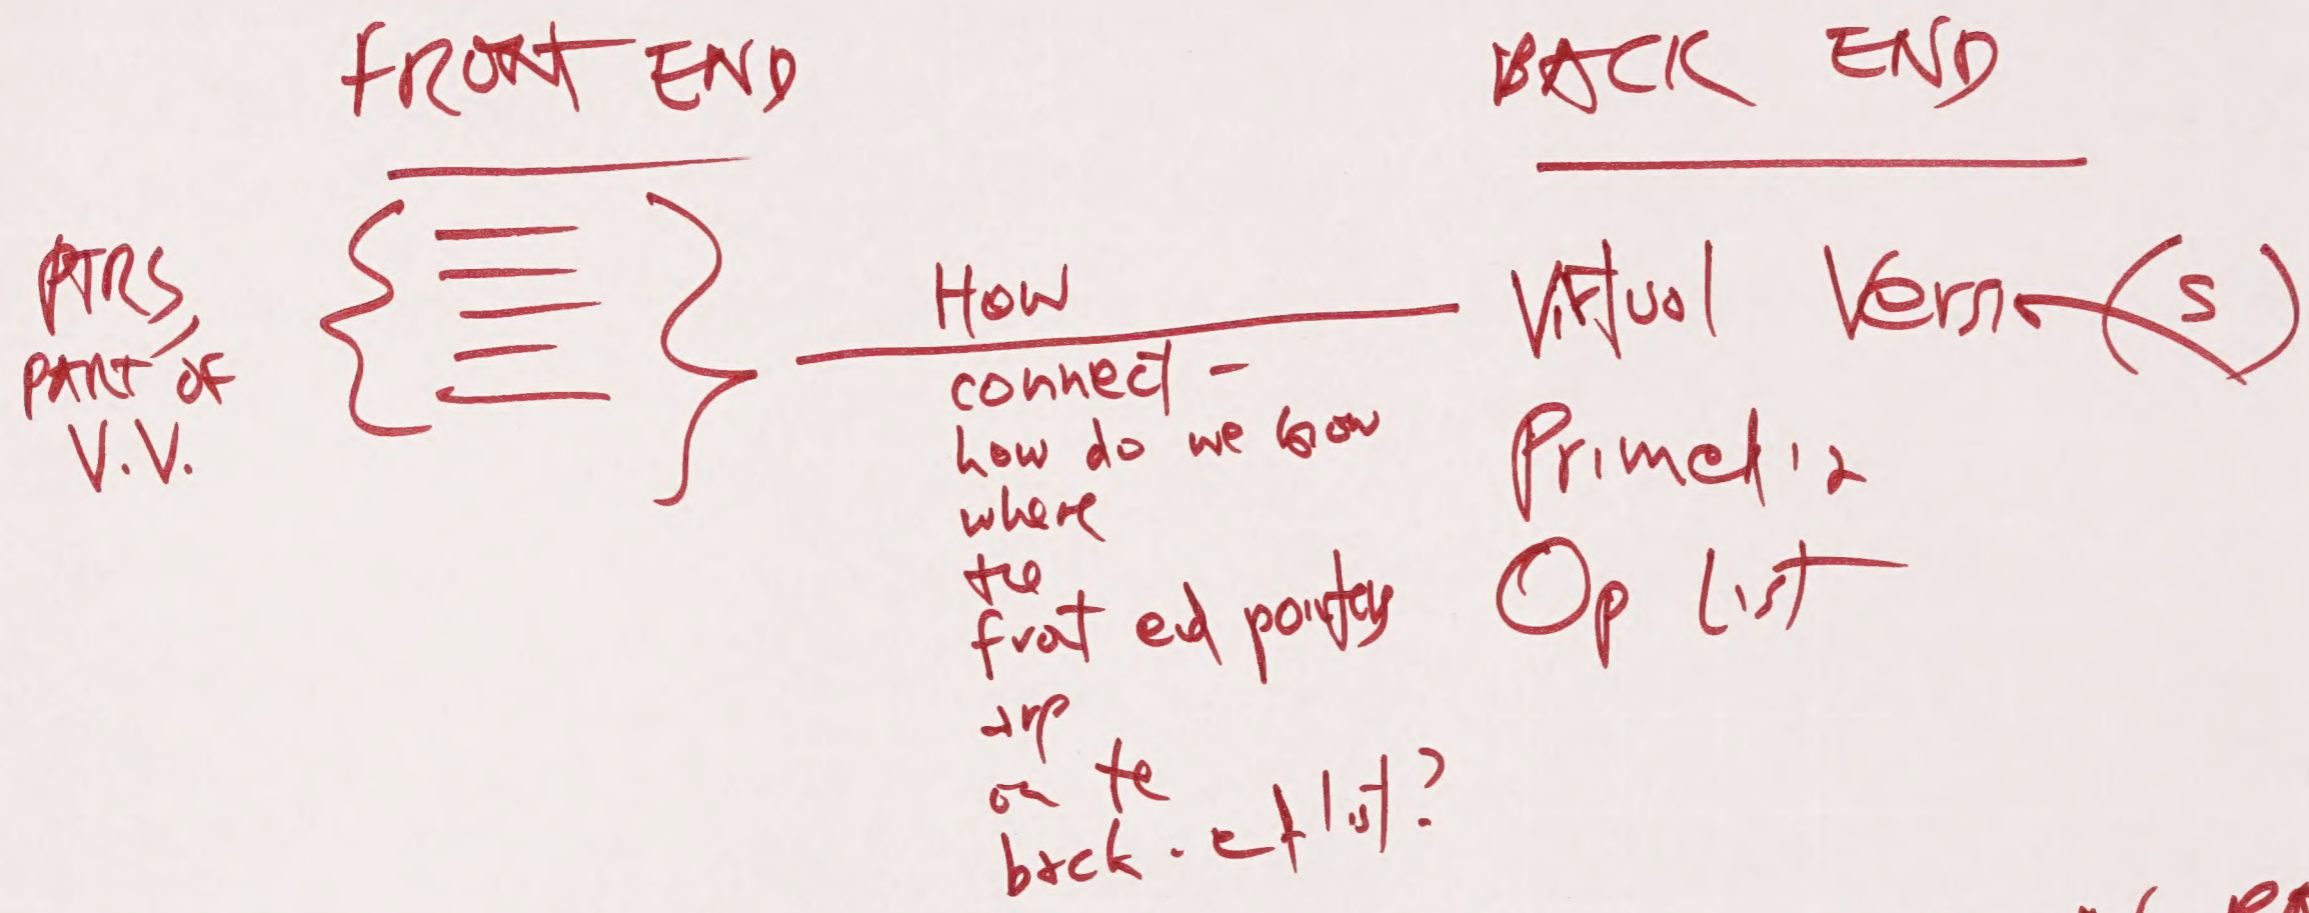 FRONT END
BACK END
PTRS,
PART OF
V.V.
How
connect -
how do we know
where
the
front end pointers
are
on the
back-end list?
Virtual Version(s)
Primedia
Op list